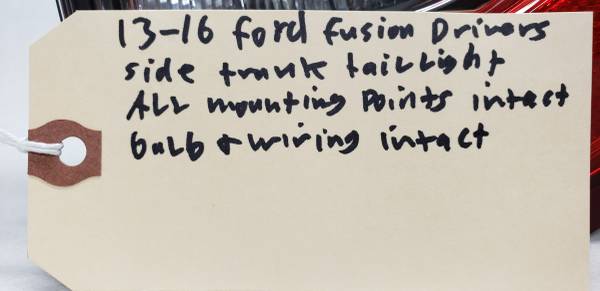 13-16 Ford Fusion Drivers
side trunk tailLight
ALL mounting Points intact
bulb + wiring intact